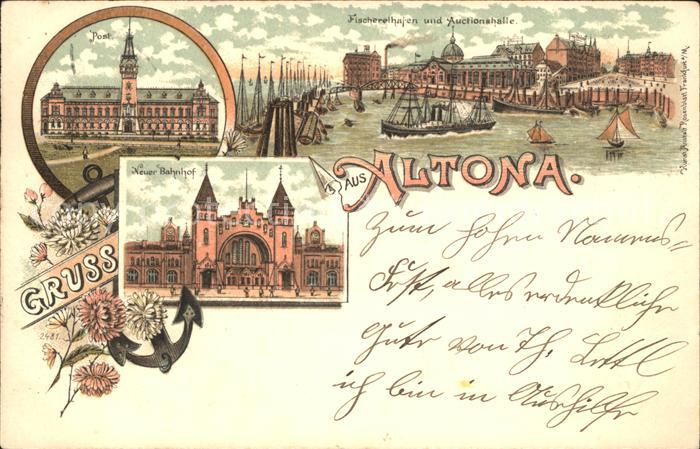 Post.
Fischereihafen und Auctionshalle.
Neuer Bahnhof
GRUSS
AUS
ALTONA.
2481.
Zum hohen Namens-
Fest, alles erdenkliche
Gute von Th.
ich bin in Aushilfe